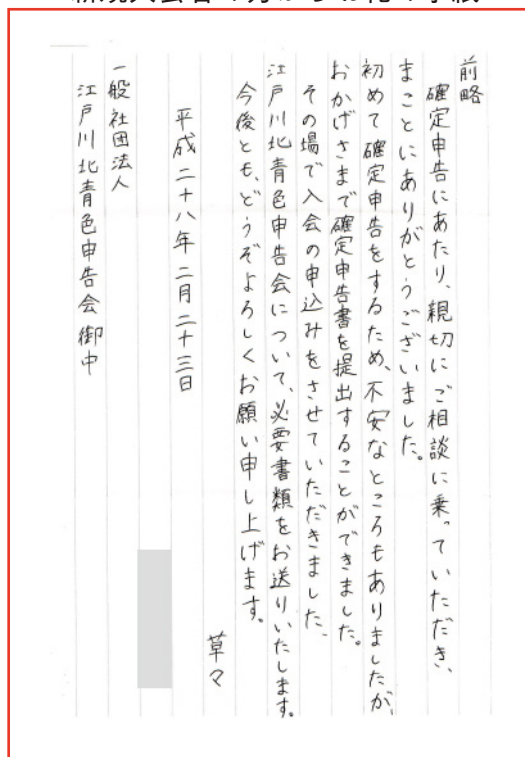 前略
確定申告にあたり、親切にご相談に乗っていただき、
まことにありがとうございました。
初めて確定申告をするため、不安なところもありましたが、
おかげさまで確定申告書を提出することができました。
その場で入会の申込みをさせていただきました、
江戸川北青色申告会について、必要書類をお送りいたします。
今後とも、どうぞよろしくお願い申し上げます。
草々
平成二十八年二月二十三日
一般社団法人
江戸川北青色申告会御中